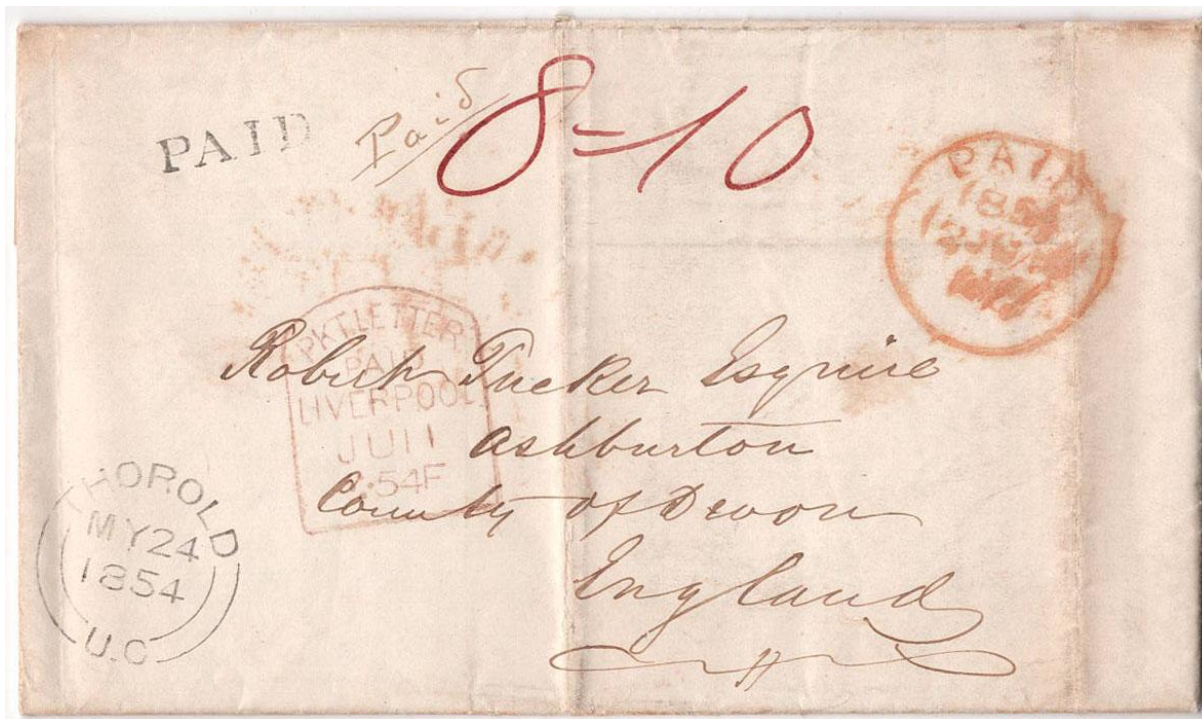 PAID
Paid
8-10
PAID
1854
12JU
PKT.LETTER
PAID
LIVERPOOL
JU11
54F
Robert Tucker Esquire
Ashburton
County of Devon
England
THOROLD
MY24
1854
U.C